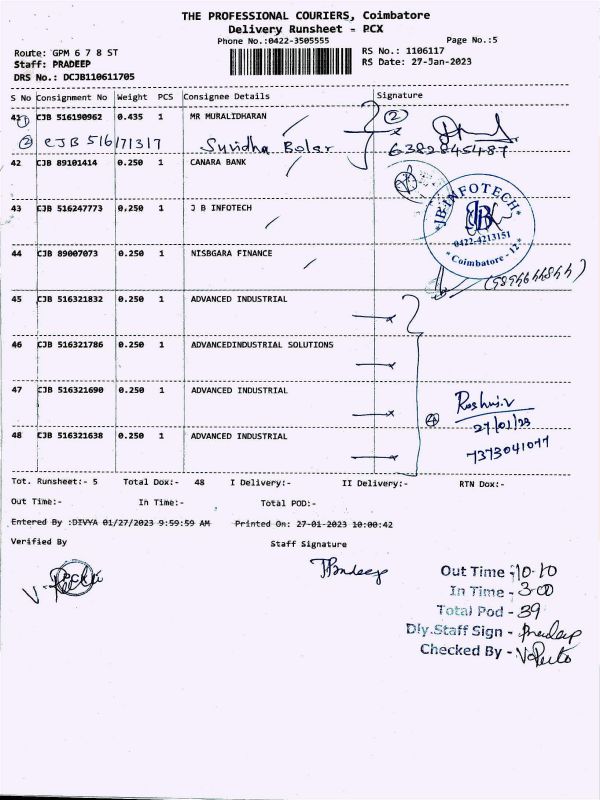 THE PROFESSIONAL COURIERS, Coimbatore
Delivery Runsheet - PCX
Phone No.:0422-3505555 Page No.:5
Route: GPM 6 7 8 ST RS No.: 1106117
Staff: PRADEEP RS Date: 27-Jan-2023
DRS No.: DCJB110611705
S No Consignment No Weight PCS Consignee Details Signature
41 ① CJB 516190962 0.435 1 MR MURALIDHARAN ②
② CJB 516171317 Suvidha Bolar 6382845487
42 CJB 89101414 0.250 1 CANARA BANK
43 CJB 516247773 0.250 1 J B INFOTECH
JB INFOTECH
JB
0422-4213151
* Coimbatore - 12 *
44 CJB 89007073 0.250 1 NISBGARA FINANCE
45 CJB 516321832 0.250 1 ADVANCED INDUSTRIAL
46 CJB 516321786 0.250 1 ADVANCEDINDUSTRIAL SOLUTIONS
47 CJB 516321690 0.250 1 ADVANCED INDUSTRIAL
Roshni.v
④ 27/01/23
48 CJB 516321638 0.250 1 ADVANCED INDUSTRIAL
7373041077
Tot. Runsheet:- 5 Total Dox:- 48 I Delivery:- II Delivery:- RTN Dox:-
Out Time:- In Time:- Total POD:-
Entered By :DIVYA 01/27/2023 9:59:59 AM Printed On: 27-01-2023 10:00:42
Verified By Staff Signature
Out Time :- 10-10
In Time - 3-00
Total Pod - 39
Dly.Staff Sign - Pradeep
Checked By -